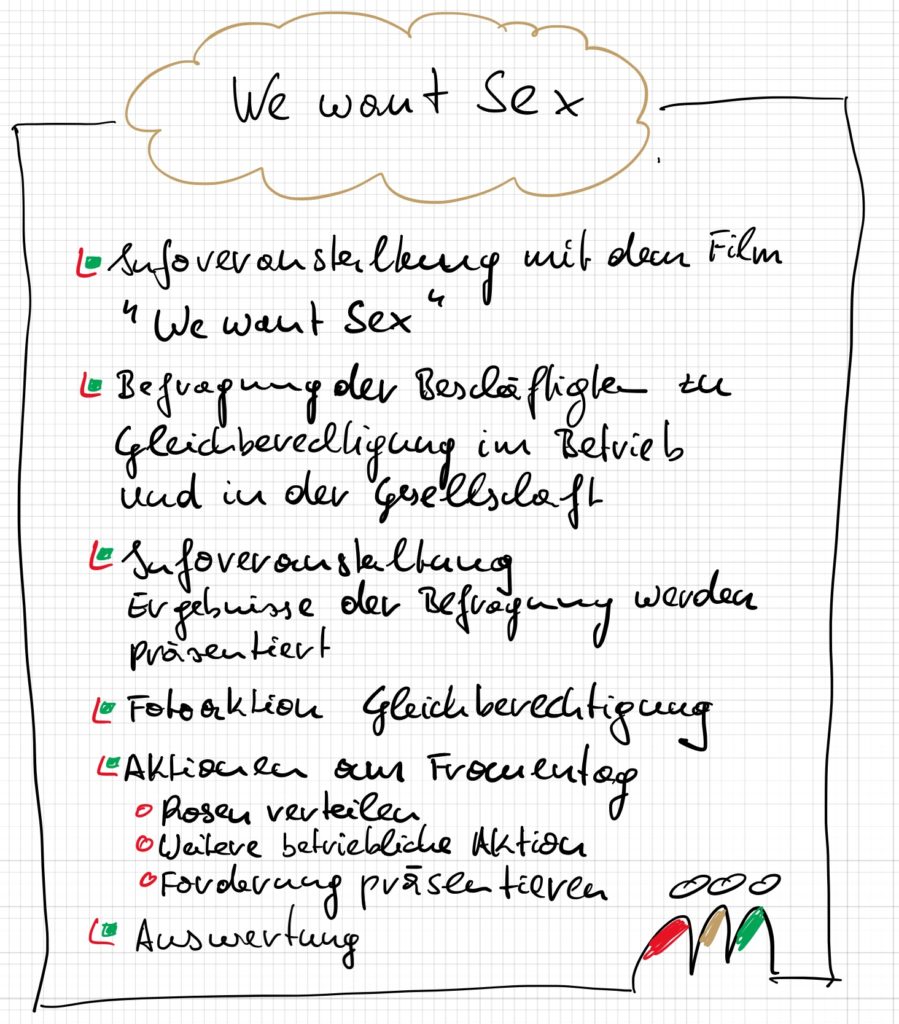 We want Sex
Infoveranstaltung mit dem Film
"We want Sex"
Befragung der Beschäftigten zu
Gleichberechtigung im Betrieb
und in der Gesellschaft
Infoveranstaltung
Ergebnisse der Befragung werden
präsentiert
Fotoaktion Gleichberechtigung
Aktionen am Frauentag
Rosen verteilen
Weitere betriebliche Aktion
Forderung präsentieren
Auswertung